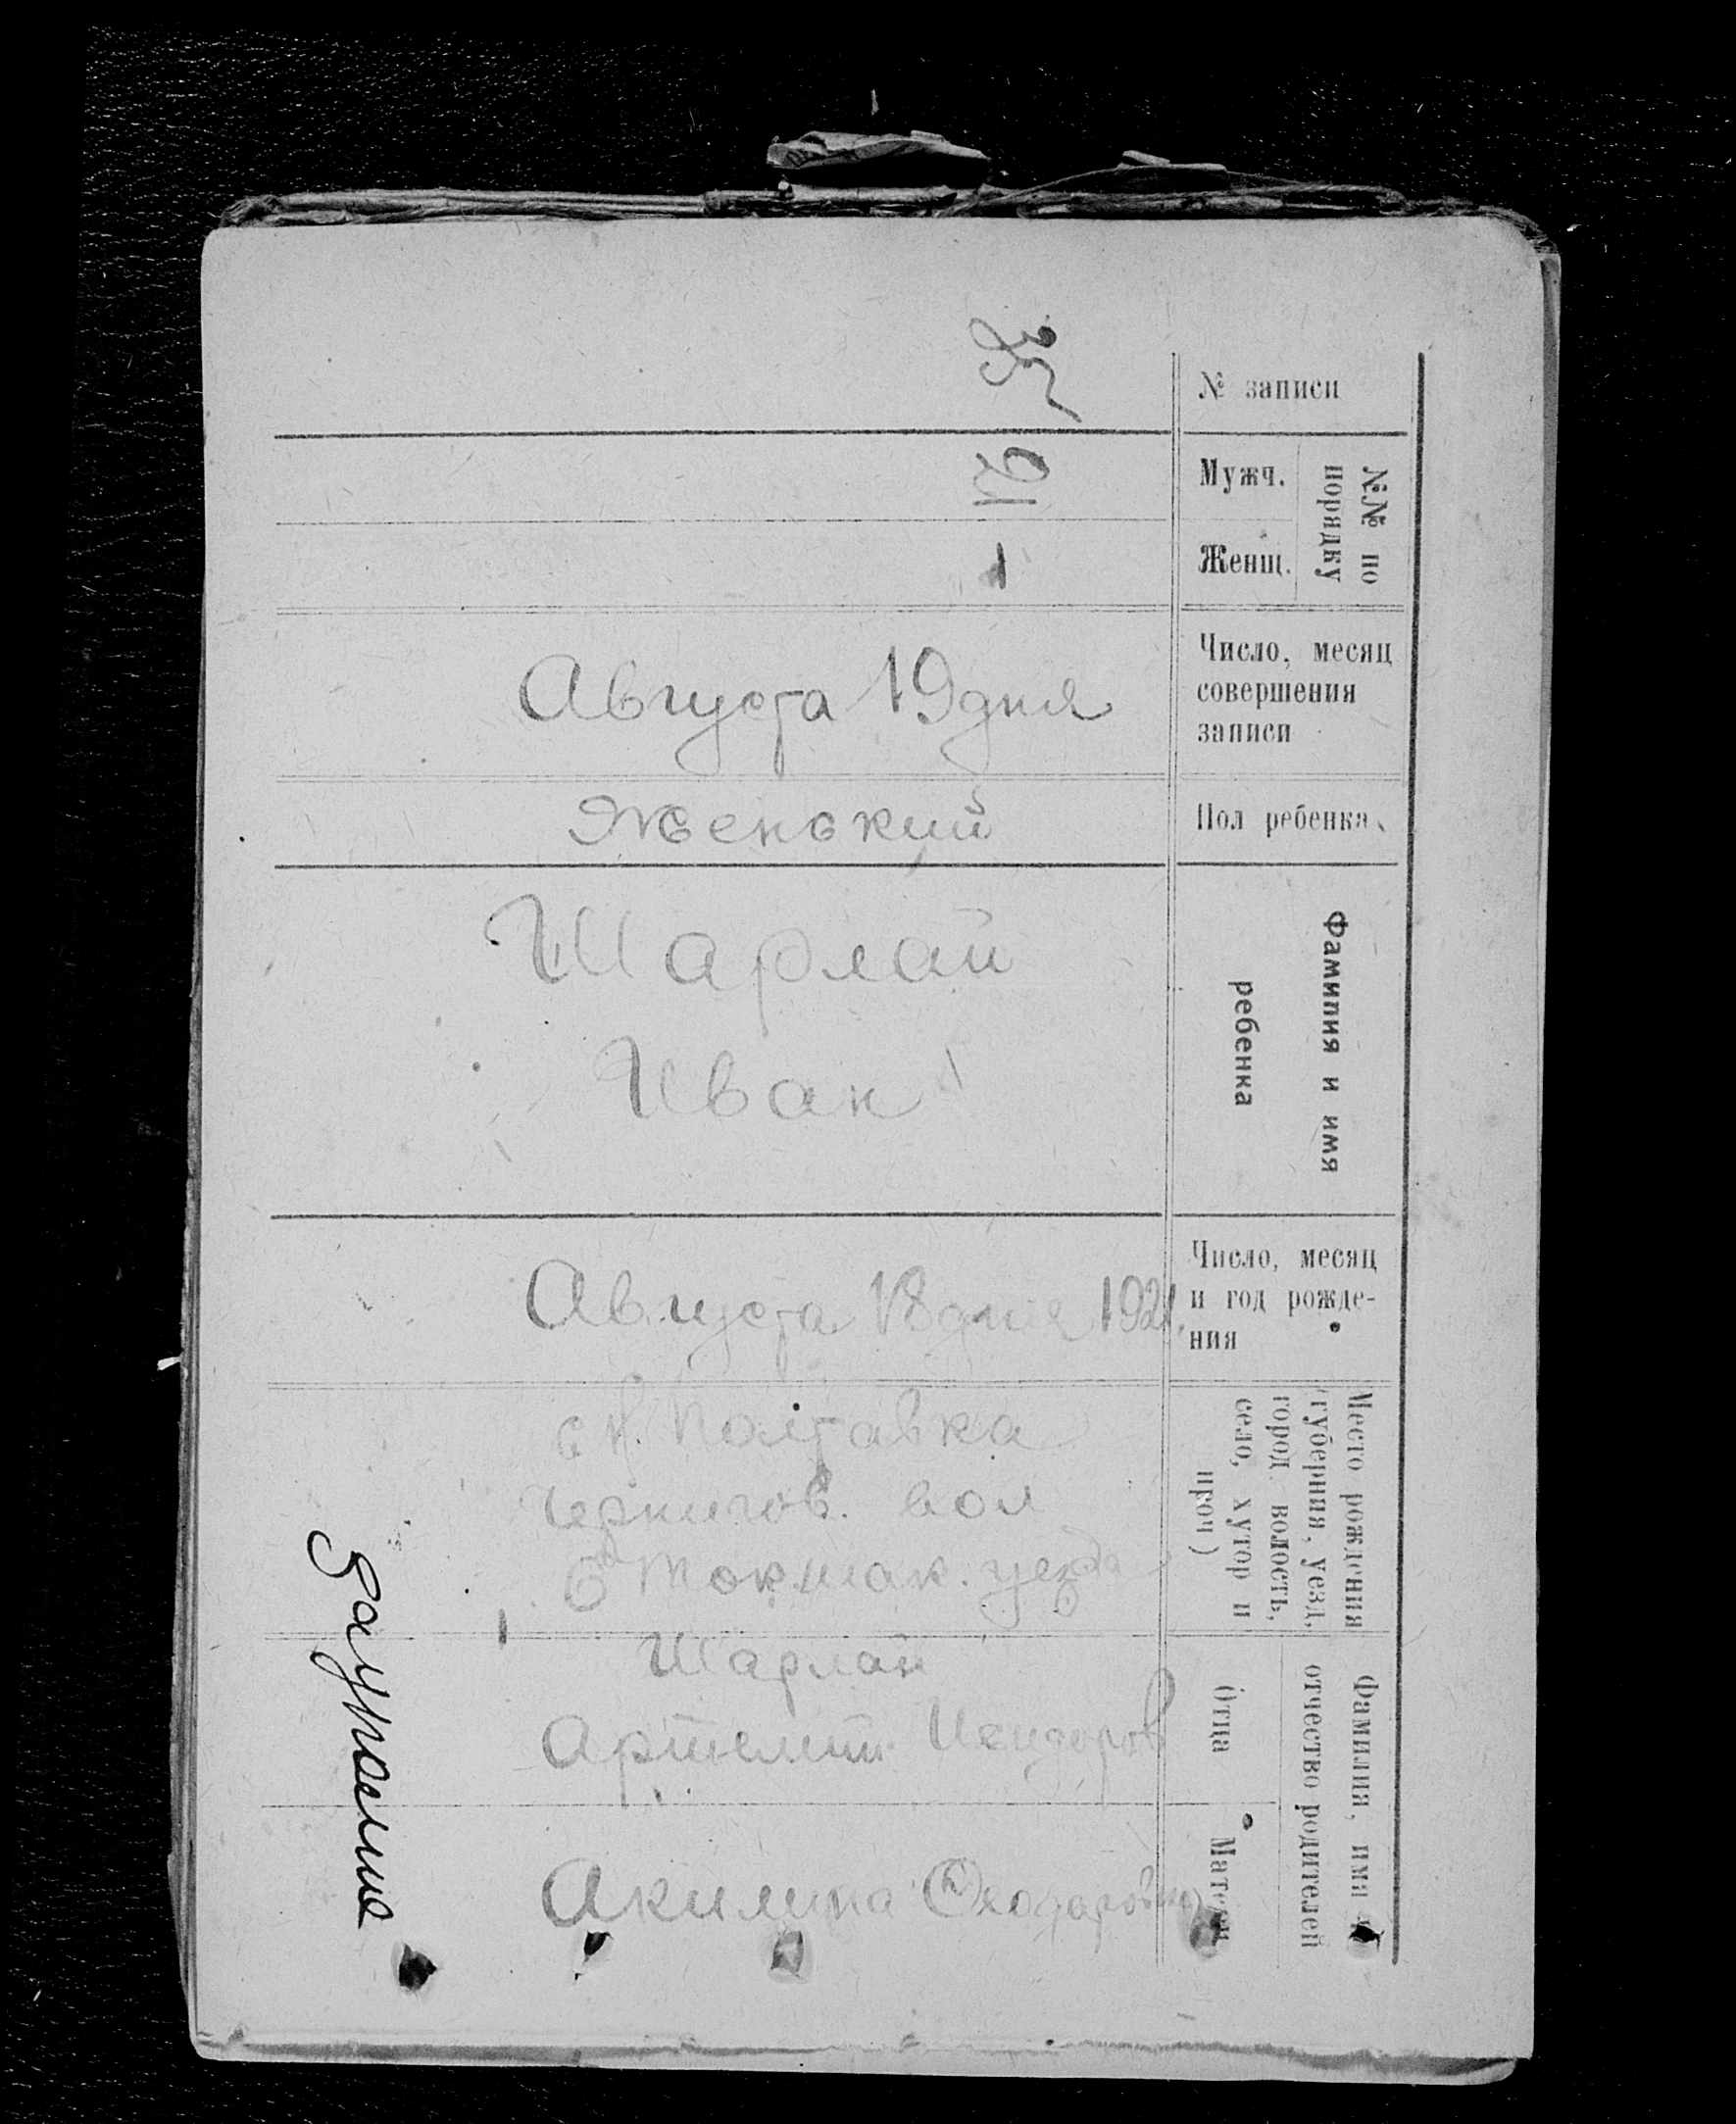 № записи
35
№№ по
порядку
Мужч.
21
Женщ.
-
Число, месяц
совершения
записи
Августа 19 дня
Пол ребенка
Женский
Фамилия и имя
ребенка
Шарлай
Иван
Число, месяц
и год рожде-
ния
Августа 18 дня 1921.
Место рождения
(губерния, уезд,
город, волость,
село, хутор и
проч)
с Н. Полтавка
Чернигов. вол
Б Токмак. уезда
Фамилия, имя и
отчество родителей
Отца
Шарлай
Матери
Акилина Феодоровна